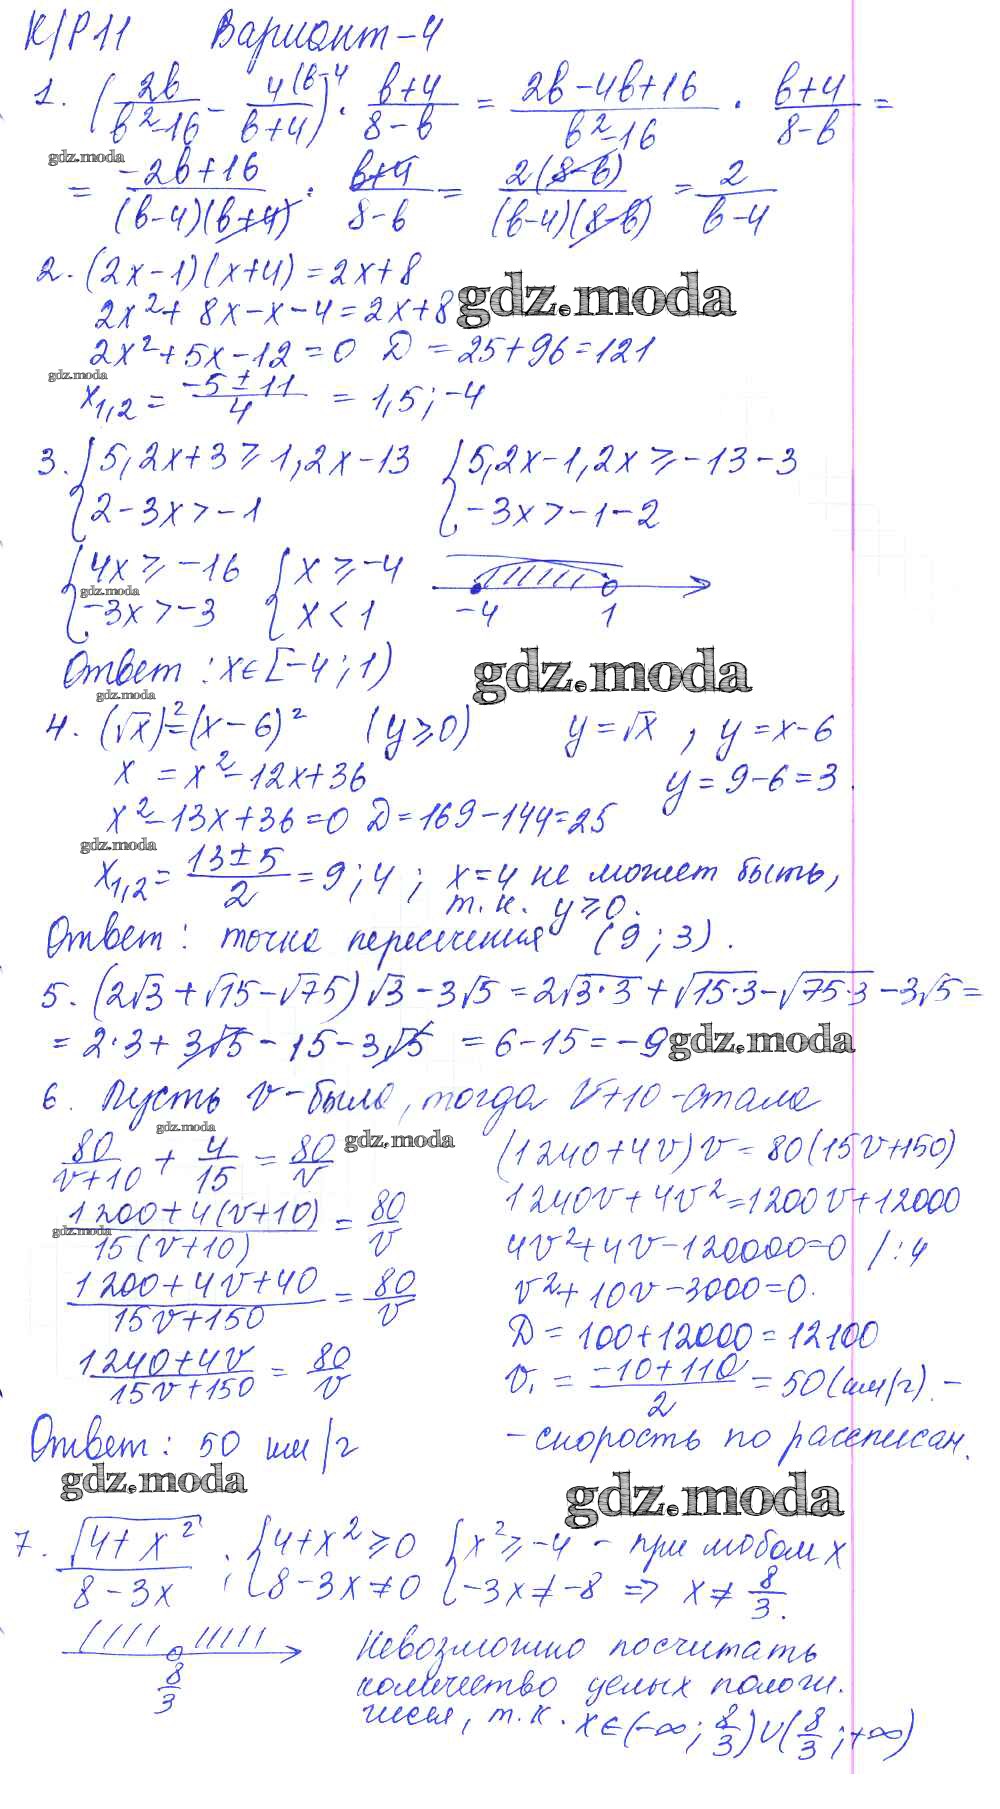 К/Р 11 Вариант-4
1. (2b/(b²-16) - 4^(b-4/(b+4)) · (b+4)/(8-b) = (2b-4b+16)/(b²-16) · (b+4)/(8-b) =
gdz.moda
= (-2b+16)/((b-4)(b+4)) · (b+4)/(8-b) = 2(8-b)/((b-4)(8-b)) = 2/(b-4)
2. (2x-1)(x+4) = 2x+8
gdz.moda
2x²+8x-x-4=2x+8
2x²+5x-12=0 Д =25+96=121
gdz.moda
x₁,₂ = (-5±11)/4 = 1,5; -4
3. {5,2x+3⩾1,2x-13 {5,2x-1,2x⩾-13-3
{2-3x>-1 {-3x>-1-2
{4x⩾-16 {x⩾-4
gdz.moda
{-3x>-3 {x<1 -4 1
Ответ: x∈[-4;1)
gdz.moda
gdz.moda
4. (√x)²=(x-6)² (y⩾0) y=√x, y=x-6
x = x²-12x+36 y=9-6=3.
x²-13x+36=0 Д=169-144=25
gdz.moda
x₁,₂= (13±5)/2 =9;4; x=4 не может быть,
т.к. y⩾0.
Ответ: точка пересечения (9;3).
5. (2√3+√15-√75)√3-3√5=2√(3·3)+√(15·3)-√(75·3)-3√5=
= 2·3+3√5-15-3√5 =6-15=-9
gdz.moda
6. Пусть v-была, тогда v+10-стала
gdz.moda
gdz.moda
80/(v+10) + 4/15 = 80/v (1240+4v)v=80(15v+150)
(1200+4(v+10))/(15(v+10)) = 80/v 1240v+4v²=1200v+12000
gdz.moda
4v²+4v-120000=0 /:4
(1200+4v+40)/(15v+150) = 80/v v²+10v-3000=0.
Д=100+12000=12100
(1240+4v)/(15v+150) = 80/v v₁ = (-10+110)/2 =50(км/г).-
Ответ: 50 км/г -скорость по расписан.
gdz.moda
gdz.moda
7. √(4+x²)/(8-3x) ; {4+x²⩾0 {x²⩾-4 - при любом x
{8-3x≠0 {-3x≠-8 => x≠8/3.
8/3 Невозможно посчитать
количество целых полож.
чисел, т.к. x∈(-∞; 8/3)∪(8/3;+∞)